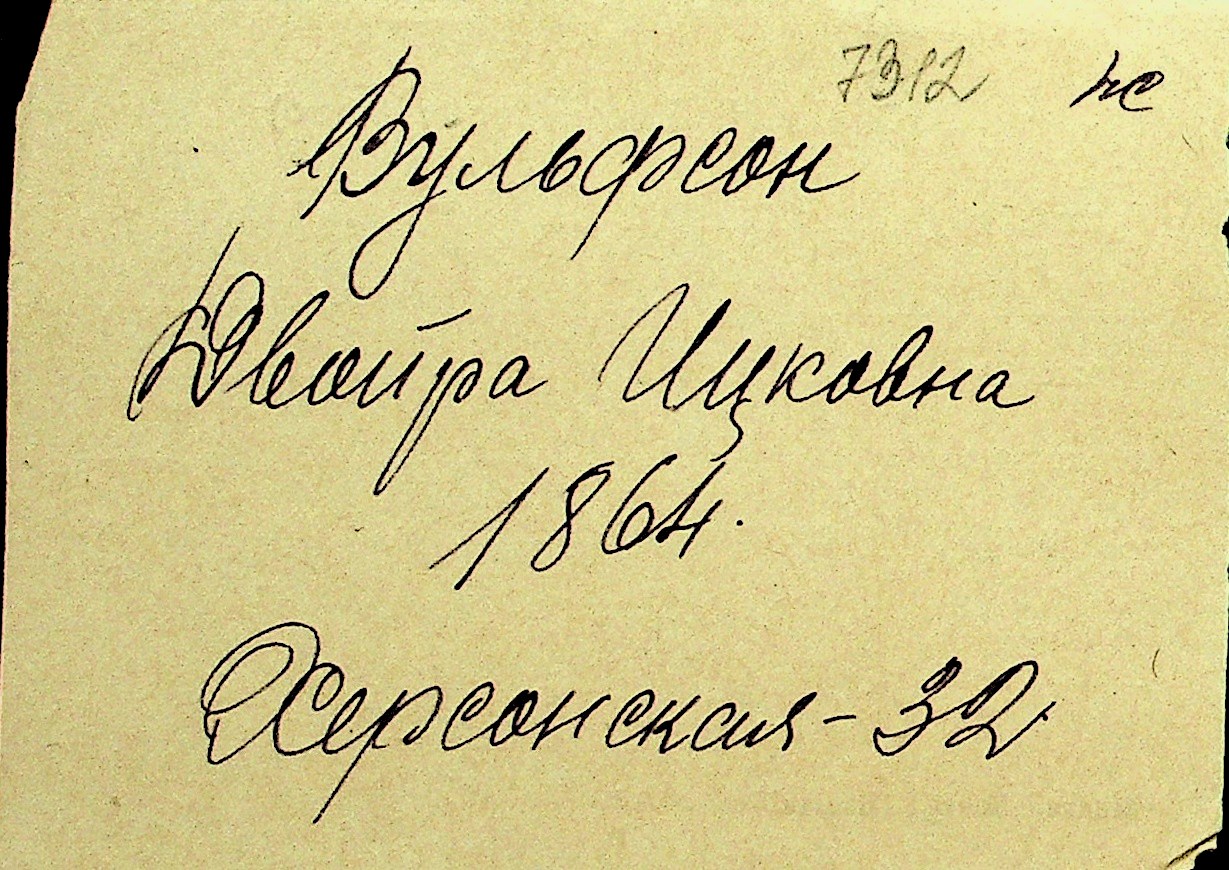 7312 же
Вульфсон
Двойра Ицковна
1864.
Херсонская - 32